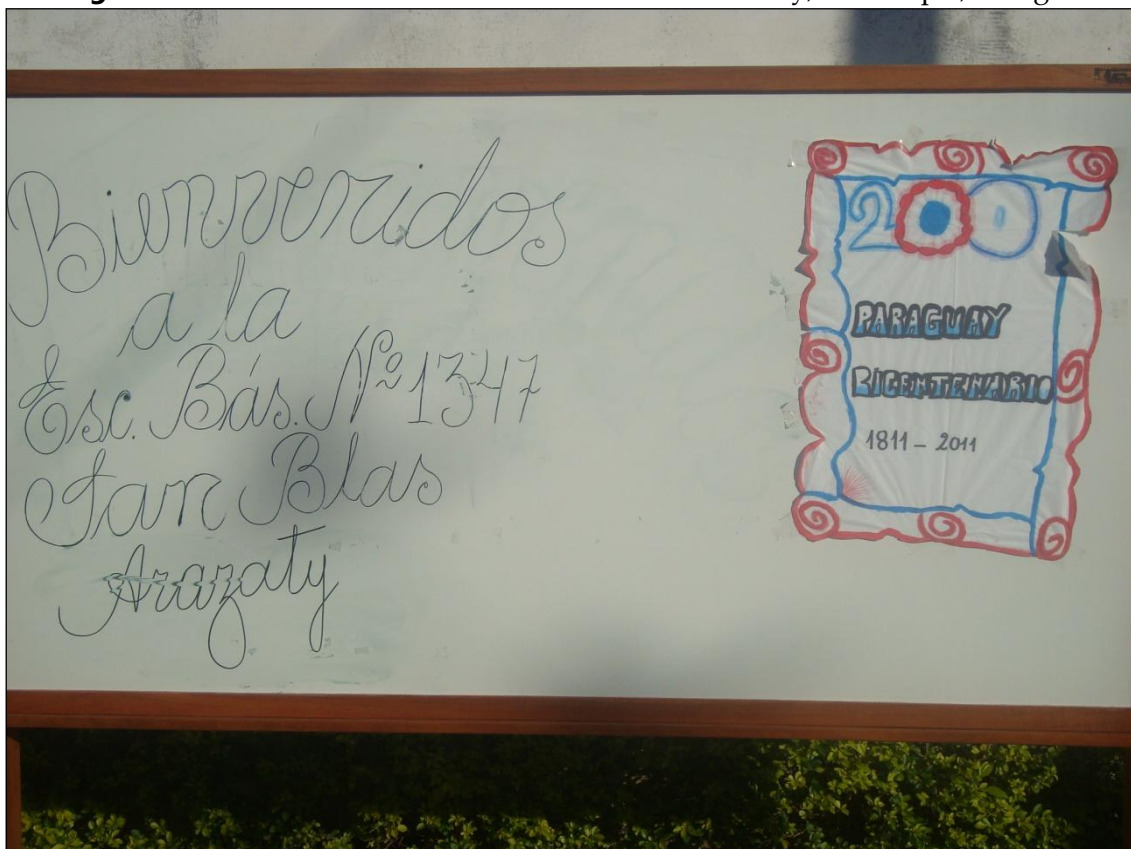 Bienvenidos
a la
Esc. Bás. Nº 1347
San Blas
Arazaty
200
PARAGUAY
BICENTENARIO
1811 - 2011